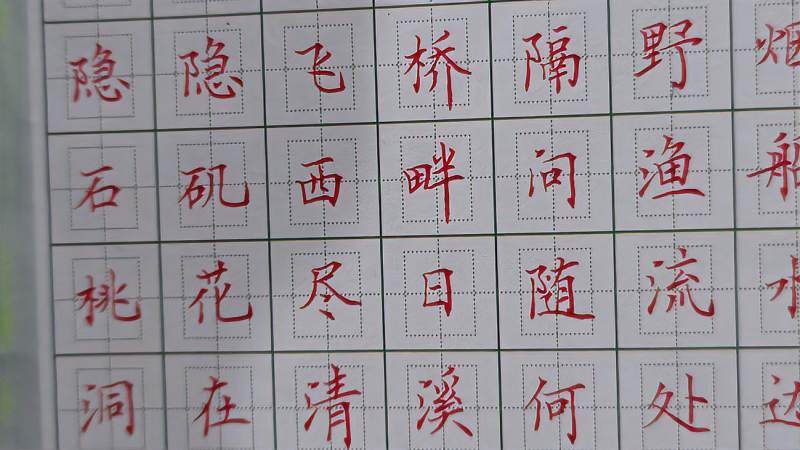 隐隐飞桥隔野烟
石矶西畔问渔船
桃花尽日随流水
洞在清溪何处边